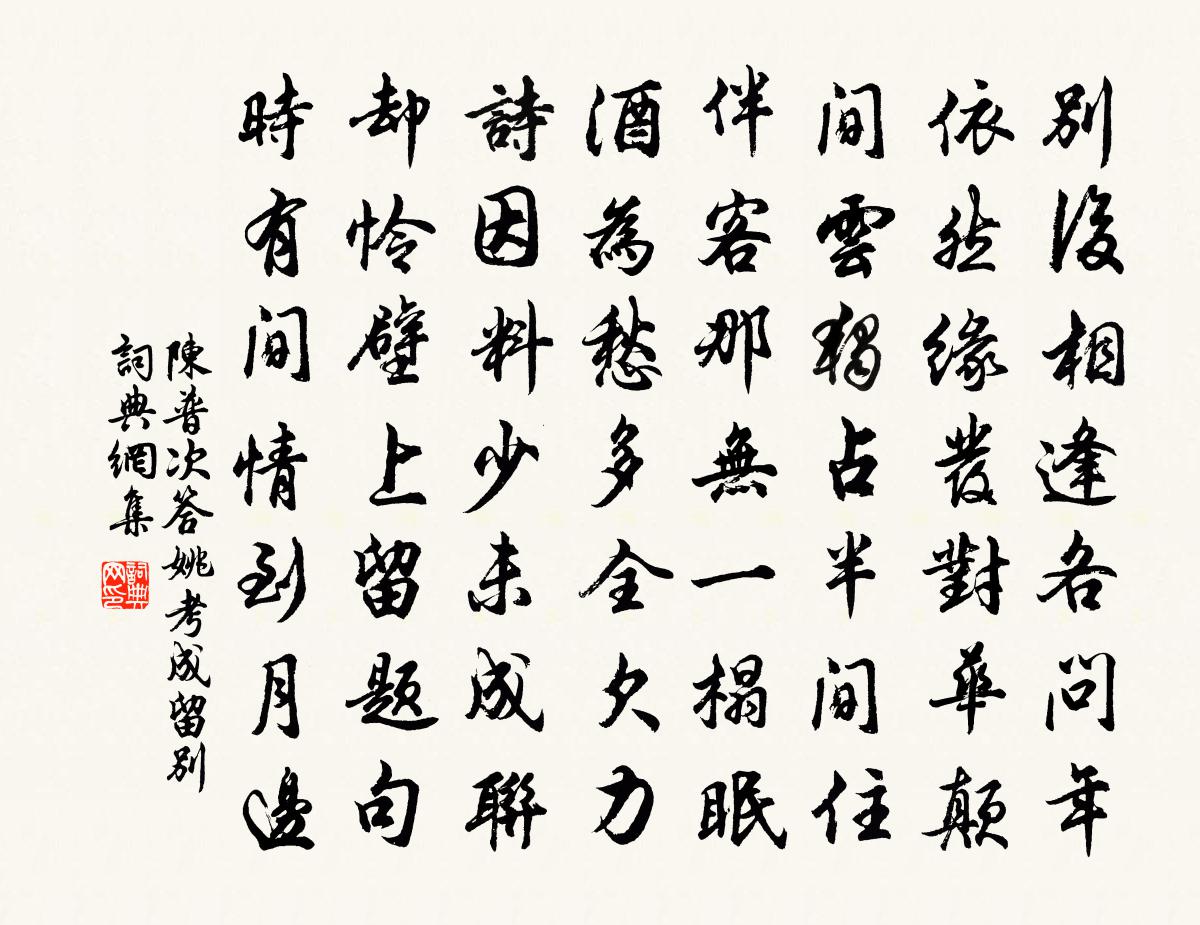 別後相逢各問年
依然緣發對華顛
間雲獨占半間住
伴客那無一榻眠
酒為愁多全欠力
詩因料少未成聯
却怜壁上留題句
時有間情到月邊
陳普次答姚考成留別
詞典網集
詞典网印